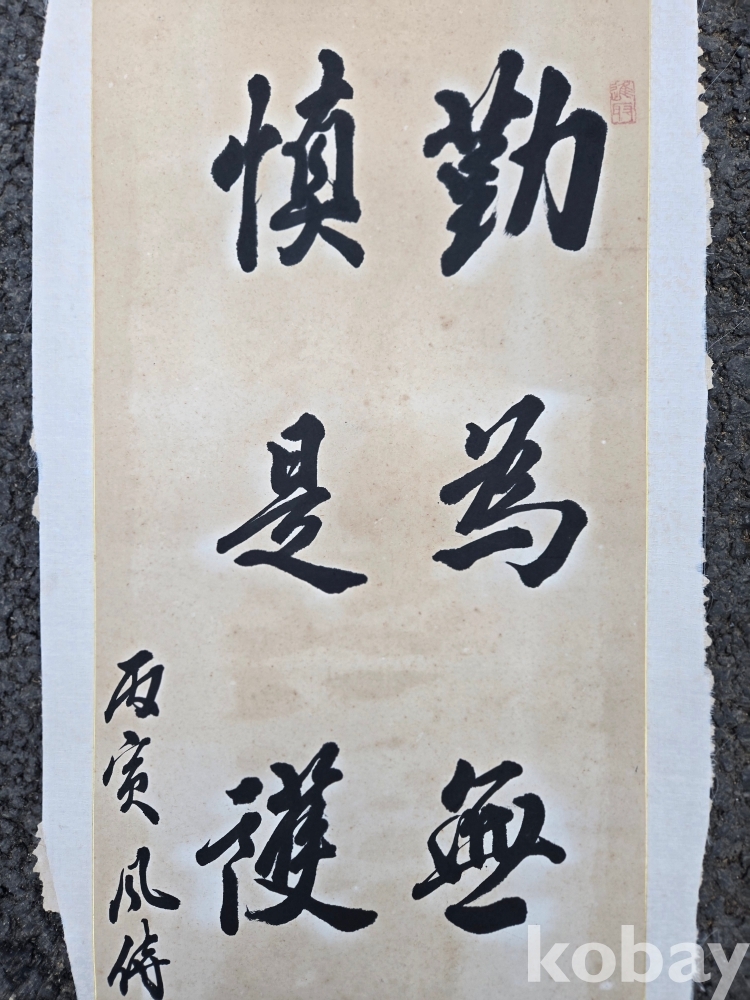 勤為無
慎是護
丙寅風
kobay